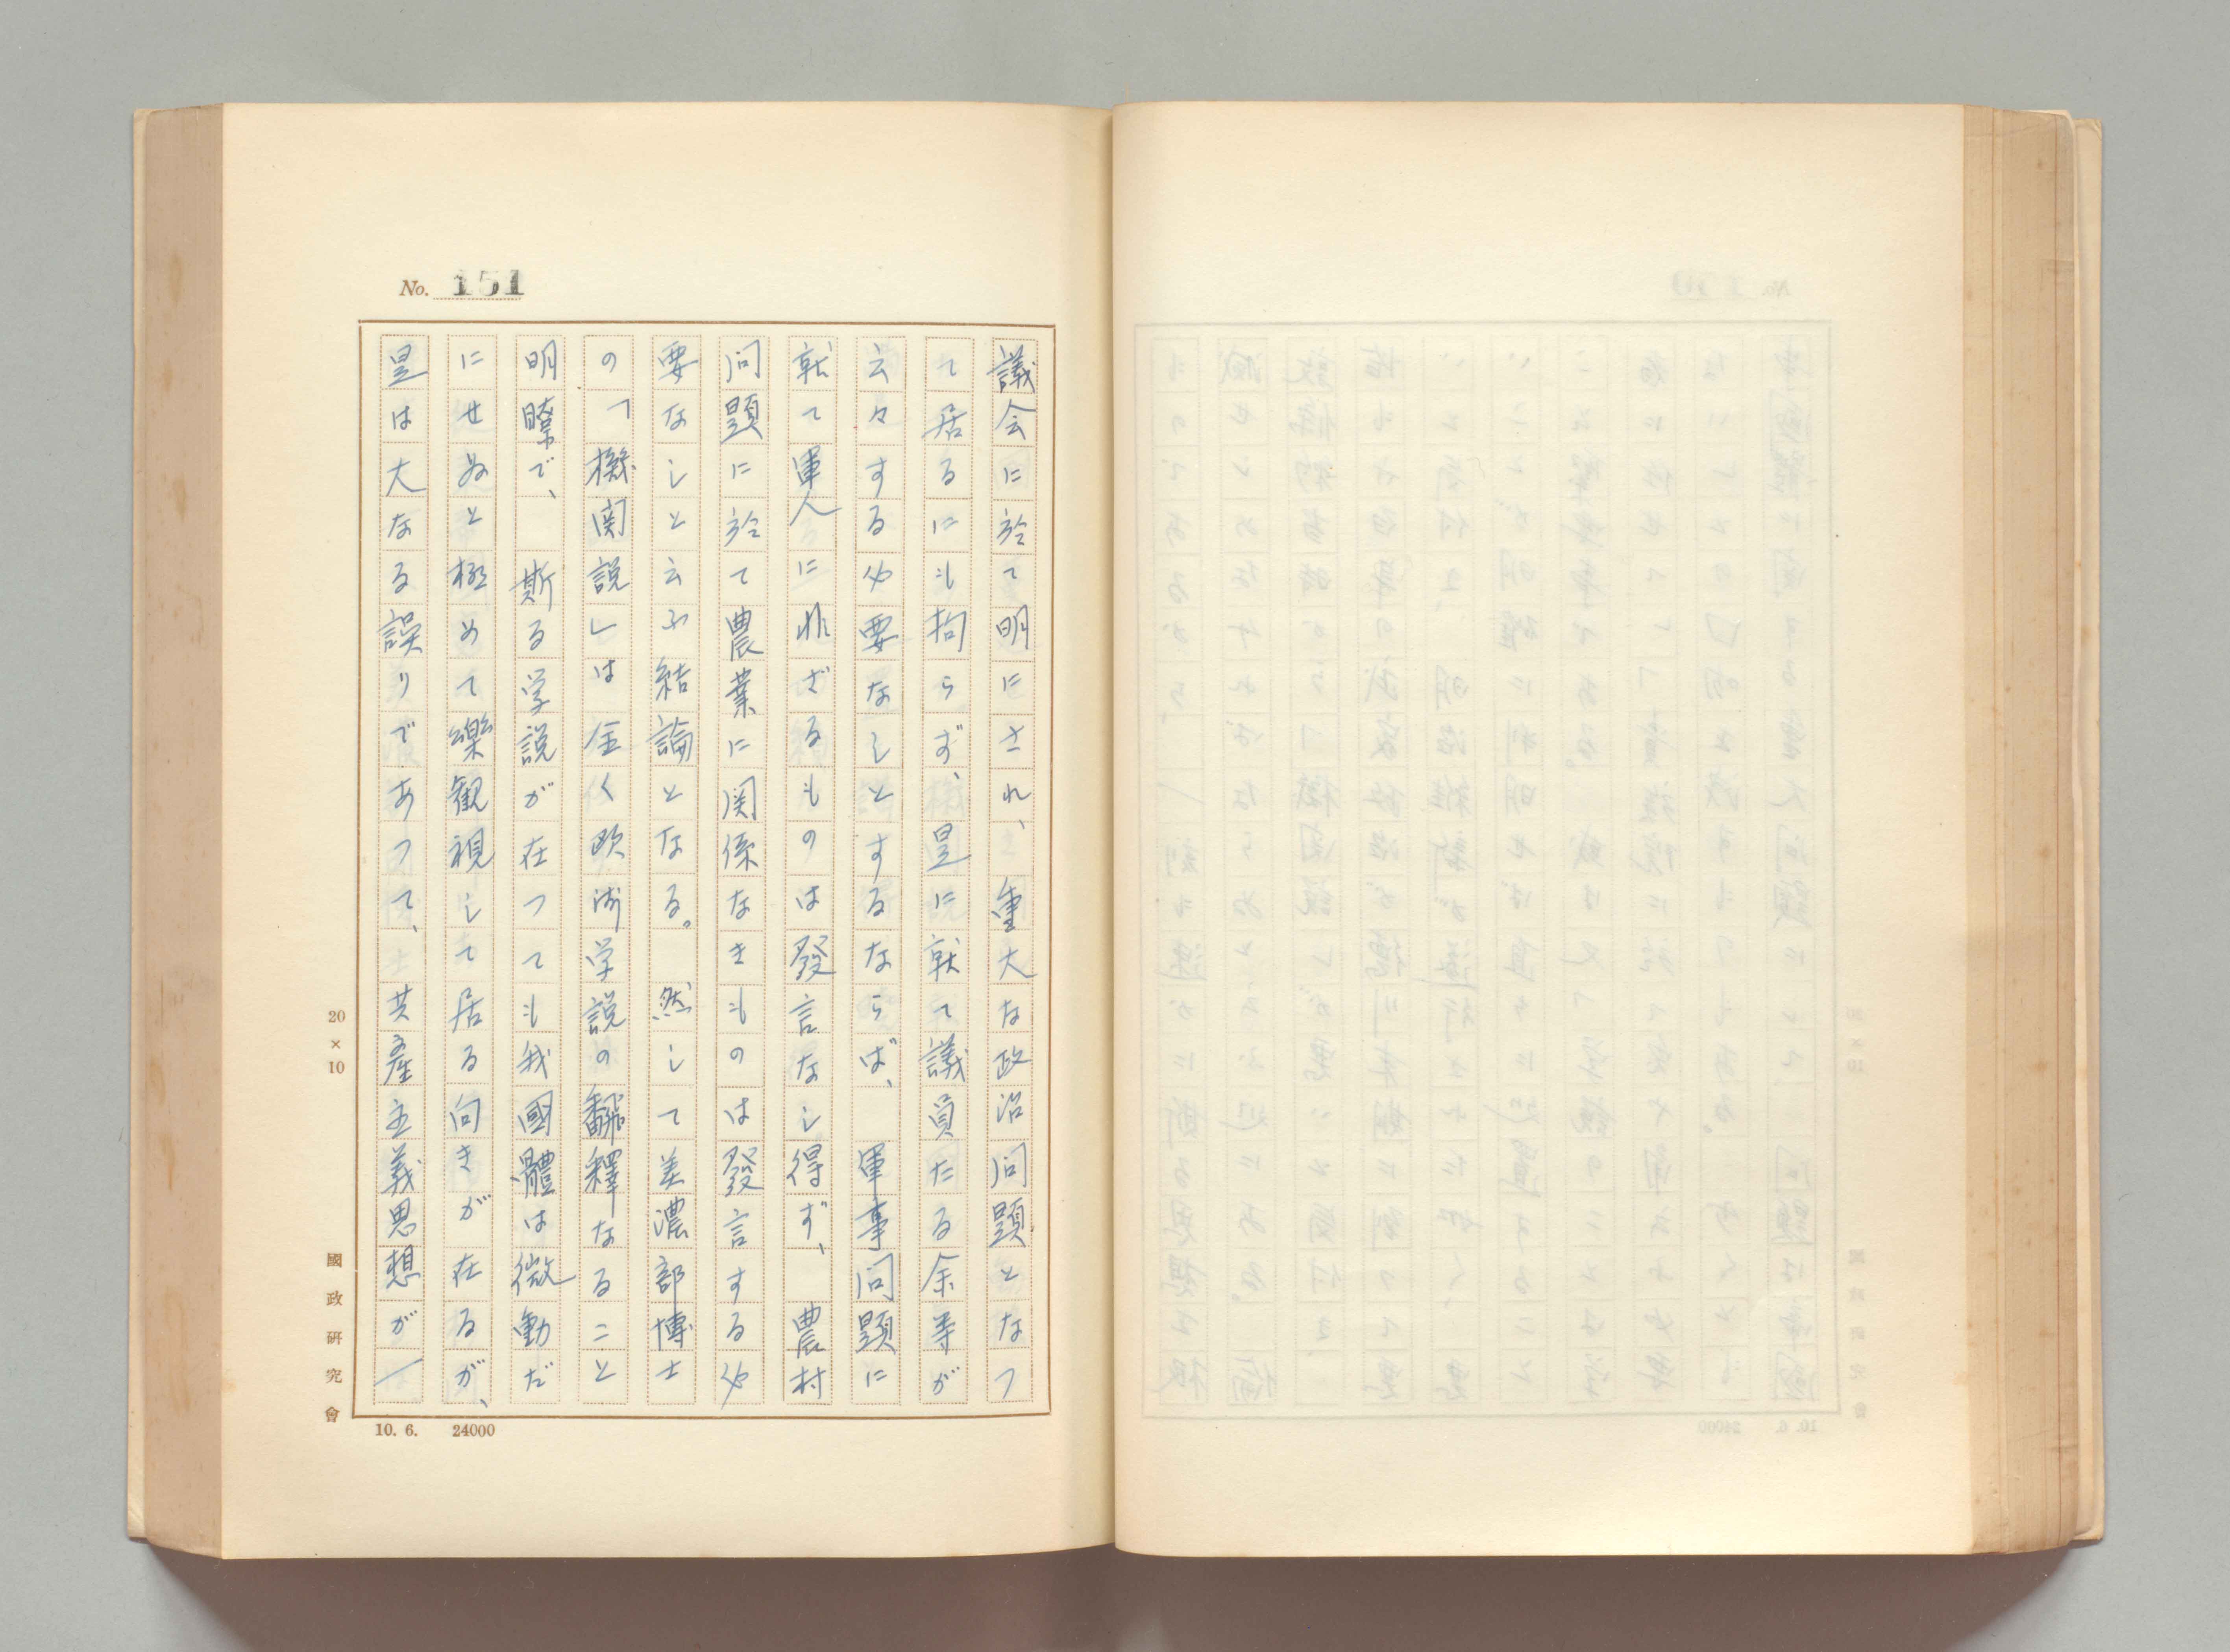 No. 151
議会に於て明にされ、重大な政治问題となつ
て居るにも拘らず、是に就て議員たる余等が
云々する必要なしとするならば、軍事问題に
就て軍人に非ざるものは發言なし得ず、農村
问題に於て農業に関係なきものは發言する必
要なしと云ふ結論となる。然して美濃部博士
の「機関説」は全く欧洲学説の飜釋なること
明瞭で、斯る学説が在つても我國體は微動だ
にせぬと極めて樂観視して居る向きが在るが、
是は大なる誤りであつて、共産主義思想が一
20×10
國政研究會
10. 6. 24000